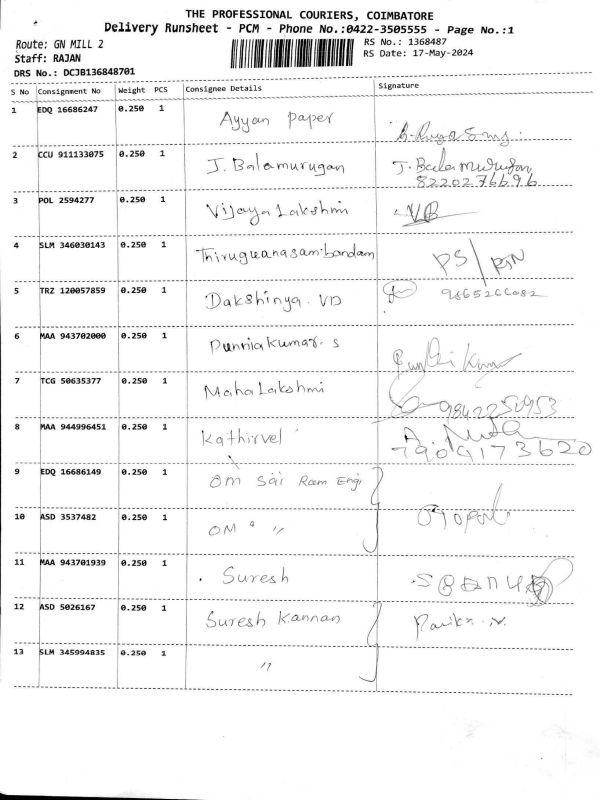 THE PROFESSIONAL COURIERS, COIMBATORE
Delivery Runsheet - PCM - Phone No.:0422-3505555 - Page No.:1
Route: GN MILL 2
RS No.: 1368487
Staff: RAJAN
RS Date: 17-May-2024
DRS No.: DCJB136848701
S No Consignment No Weight PCS Consignee Details Signature
1 EDQ 16686247 0.250 1 Ayyan paper
2 CCU 911133075 0.250 1 J. Balamurugan J. Balamurugan
8220276696
3 POL 2594277 0.250 1 Vijaya Lakshmi VB
4 SLM 346030143 0.250 1 Thirugnanasambandam PS/
5 TRZ 120057859 0.250 1 Dakshinya. VD 9865266082
6 MAA 943702000 0.250 1 Punniakumar. S
7 TCG 50635377 0.250 1 Maha Lakshmi 9842250953
8 MAA 944996451 0.250 1 Kathirvel 7909173620
9 EDQ 16686149 0.250 1 Om Sai Ram Engi
10 ASD 3537482 0.250 1 OM " "
11 MAA 943701939 0.250 1 Suresh
12 ASD 5026167 0.250 1 Suresh Kannan
13 SLM 345994835 0.250 1 "